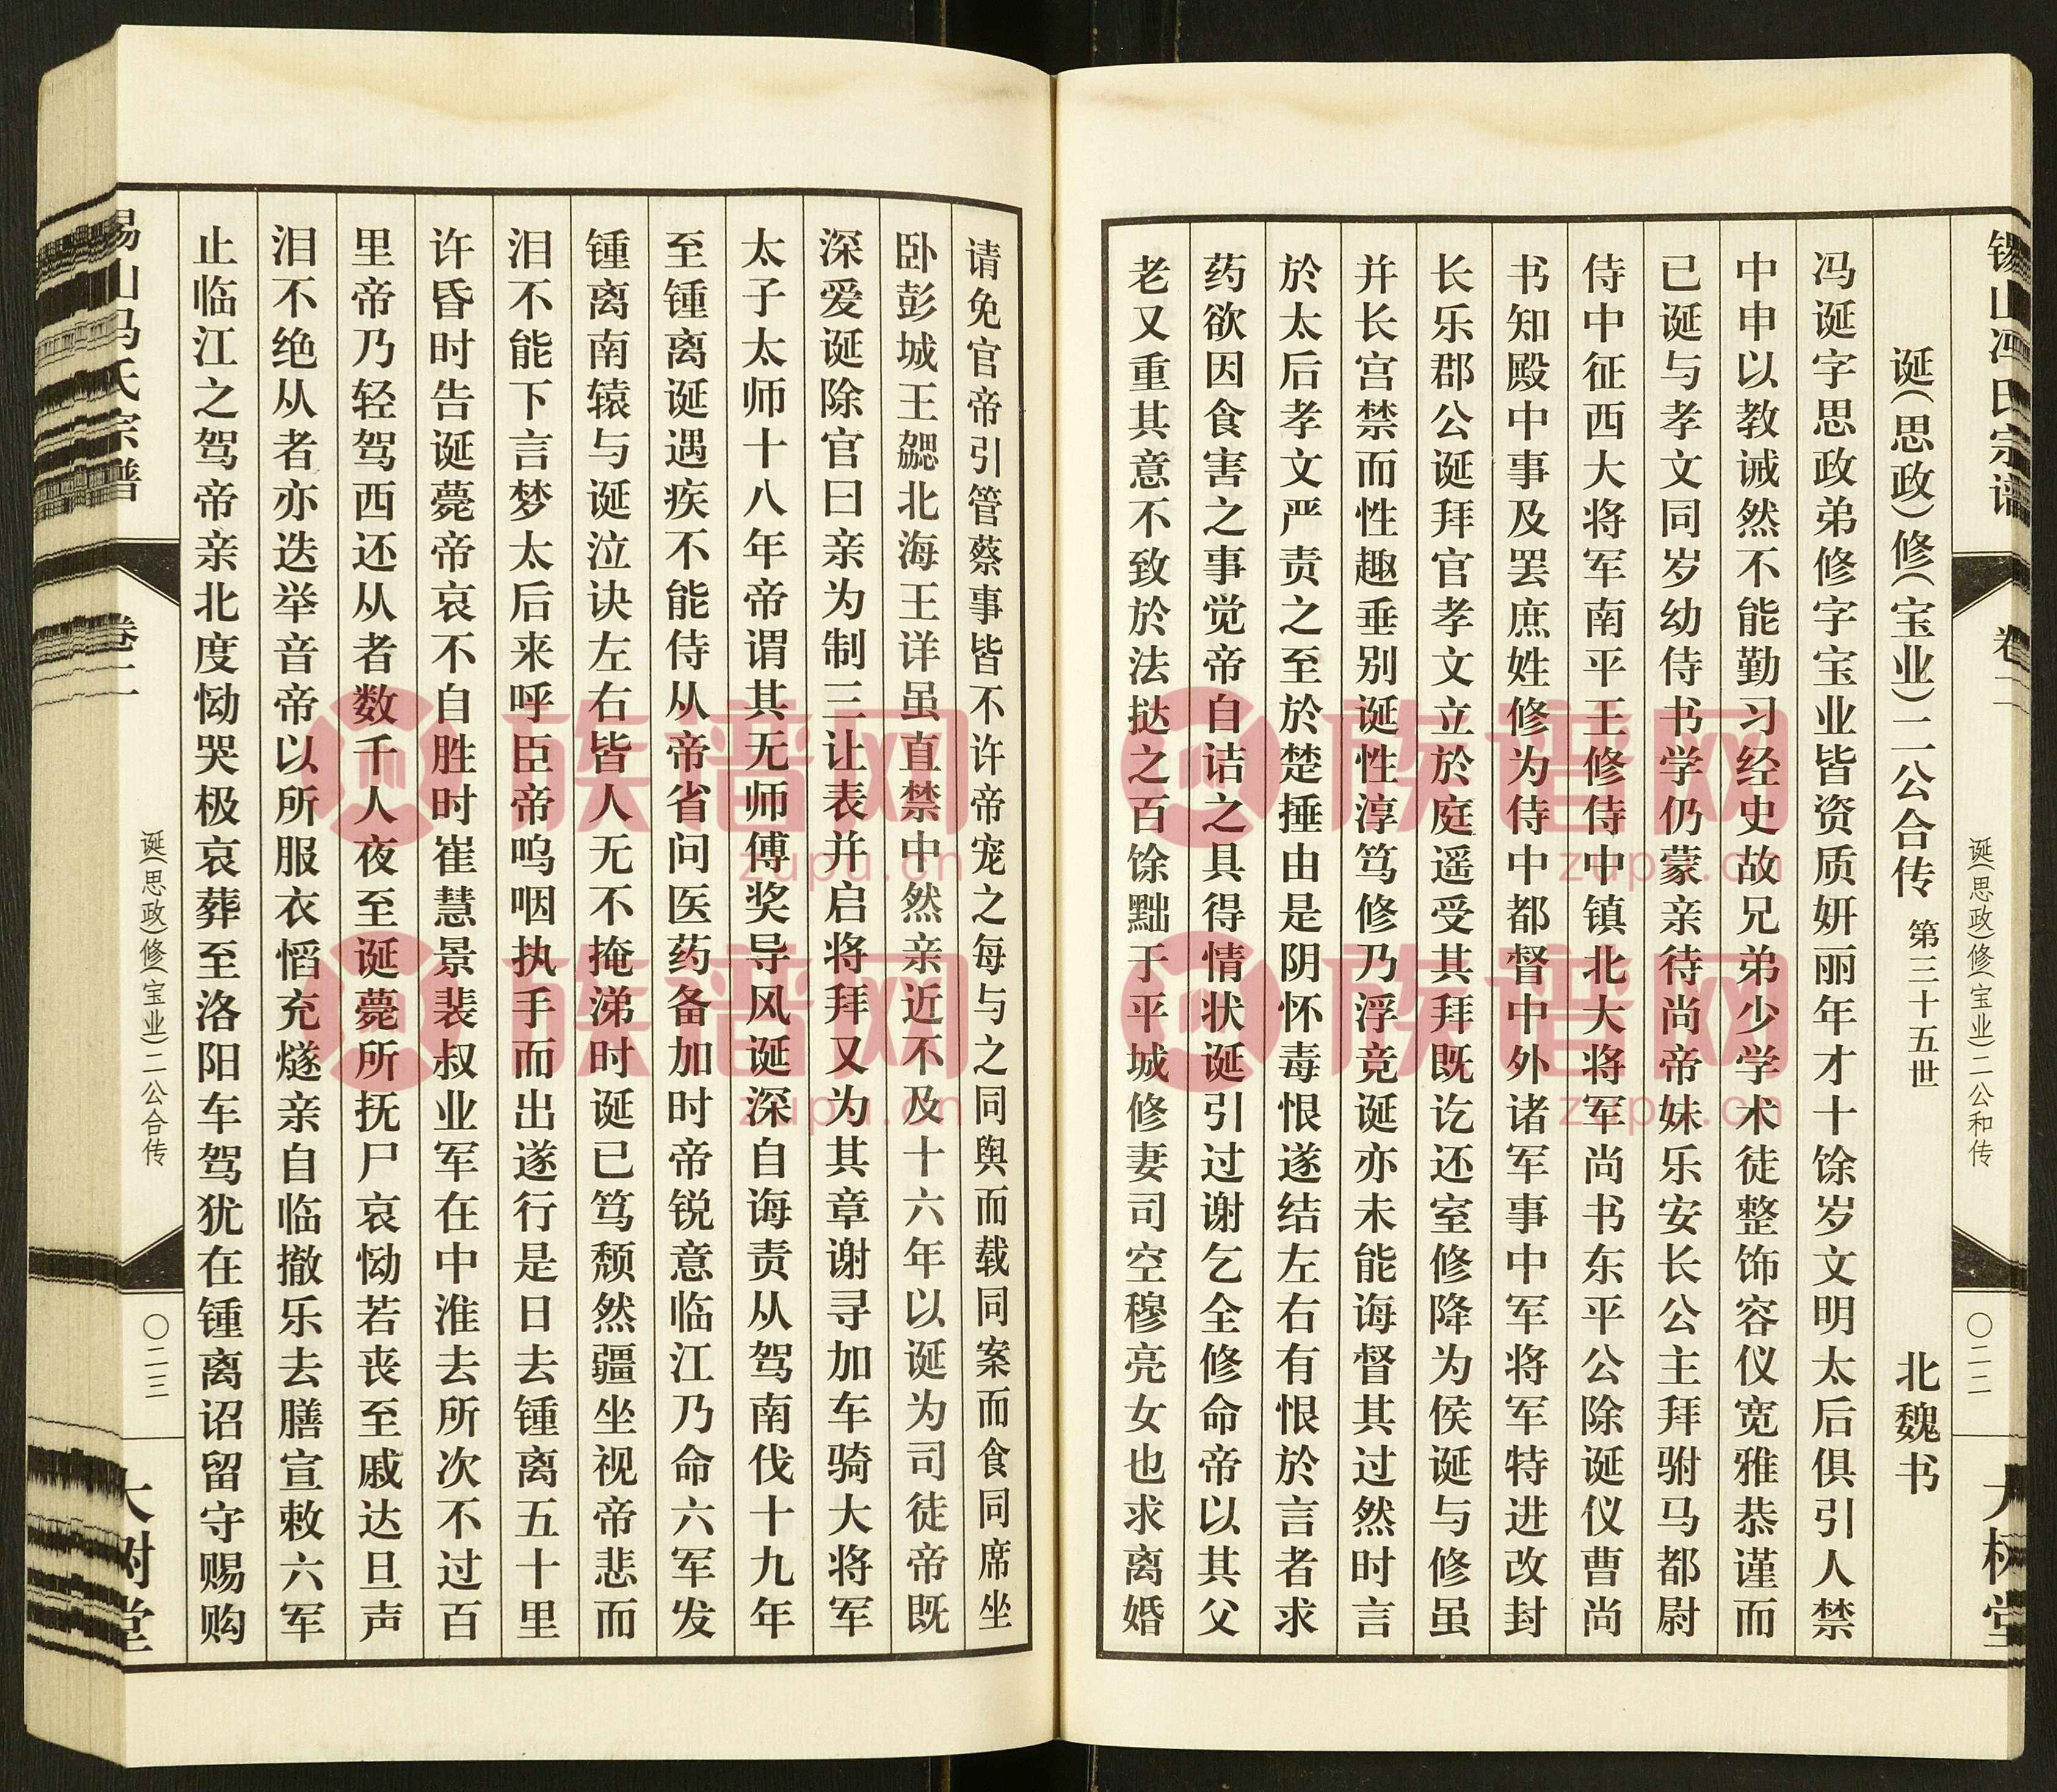 锡山冯氏宗谱 卷二 诞(思政)修(宝业)二公和传 〇二二 大树堂
诞(思政)修(宝业)二公合传 第三十五世 北魏书
冯诞字思政弟修字宝业皆资质妍丽年才十馀岁文明太后俱引人禁
中申以教诫然不能勤习经史故兄弟少学术徒整饰容仪宽雅恭谨而
已诞与孝文同岁幼侍书学仍蒙亲待尚帝妹乐安长公主拜驸马都尉
侍中征西大将军南平王修侍中镇北大将军尚书东平公除诞仪曹尚
书知殿中事及罢庶姓修为侍中都督中外诸军事中军将军特进改封
长乐郡公诞拜官孝文立於庭遥受其拜既讫还室修降为侯诞与修虽
并长宫禁而性趣垂别诞性淳笃修乃浮竞诞亦未能诲督其过然时言
於太后孝文严责之至於楚捶由是阴怀毒恨遂结左右有恨於言者求
药欲因食害之事觉帝自诘之具得情状诞引过谢乞全修命帝以其父
老又重其意不致於法挞之百馀黜于平城修妻司空穆亮女也求离婚
请免官帝引管蔡事皆不许帝宠之每与之同舆而载同案而食同席坐
卧彭城王勰北海王详虽直禁中然亲近不及十六年以诞为司徒帝既
深爱诞除官曰亲为制三让表并启将拜又为其章谢寻加车骑大将军
太子太师十八年帝谓其无师傅奖导风诞深自诲责从驾南伐十九年
至锺离诞遇疾不能侍从帝省问医药备加时帝锐意临江乃命六军发
锺离南辕与诞泣诀左右皆人无不掩涕时诞已笃颓然疆坐视帝悲而
泪不能下言梦太后来呼臣帝呜咽执手而出遂行是日去锺离五十里
许昏时告诞薨帝哀不自胜时崔慧景裴叔业军在中淮去所次不过百
里帝乃轻驾西还从者数千人夜至诞薨所抚尸哀恸若丧至戚达旦声
泪不绝从者亦迭举音帝以所服衣慆充燧亲自临撤乐去膳宣敕六军
止临江之驾帝亲北度恸哭极哀葬至洛阳车驾犹在锺离诏留守赐购
锡山冯氏宗谱 卷二 诞(思政)修(宝业)二公合传 〇二三 大树堂
族谱网
zupu.cn
族谱网
zupu.cn
族谱网
zupu.cn
族谱网
zupu.cn